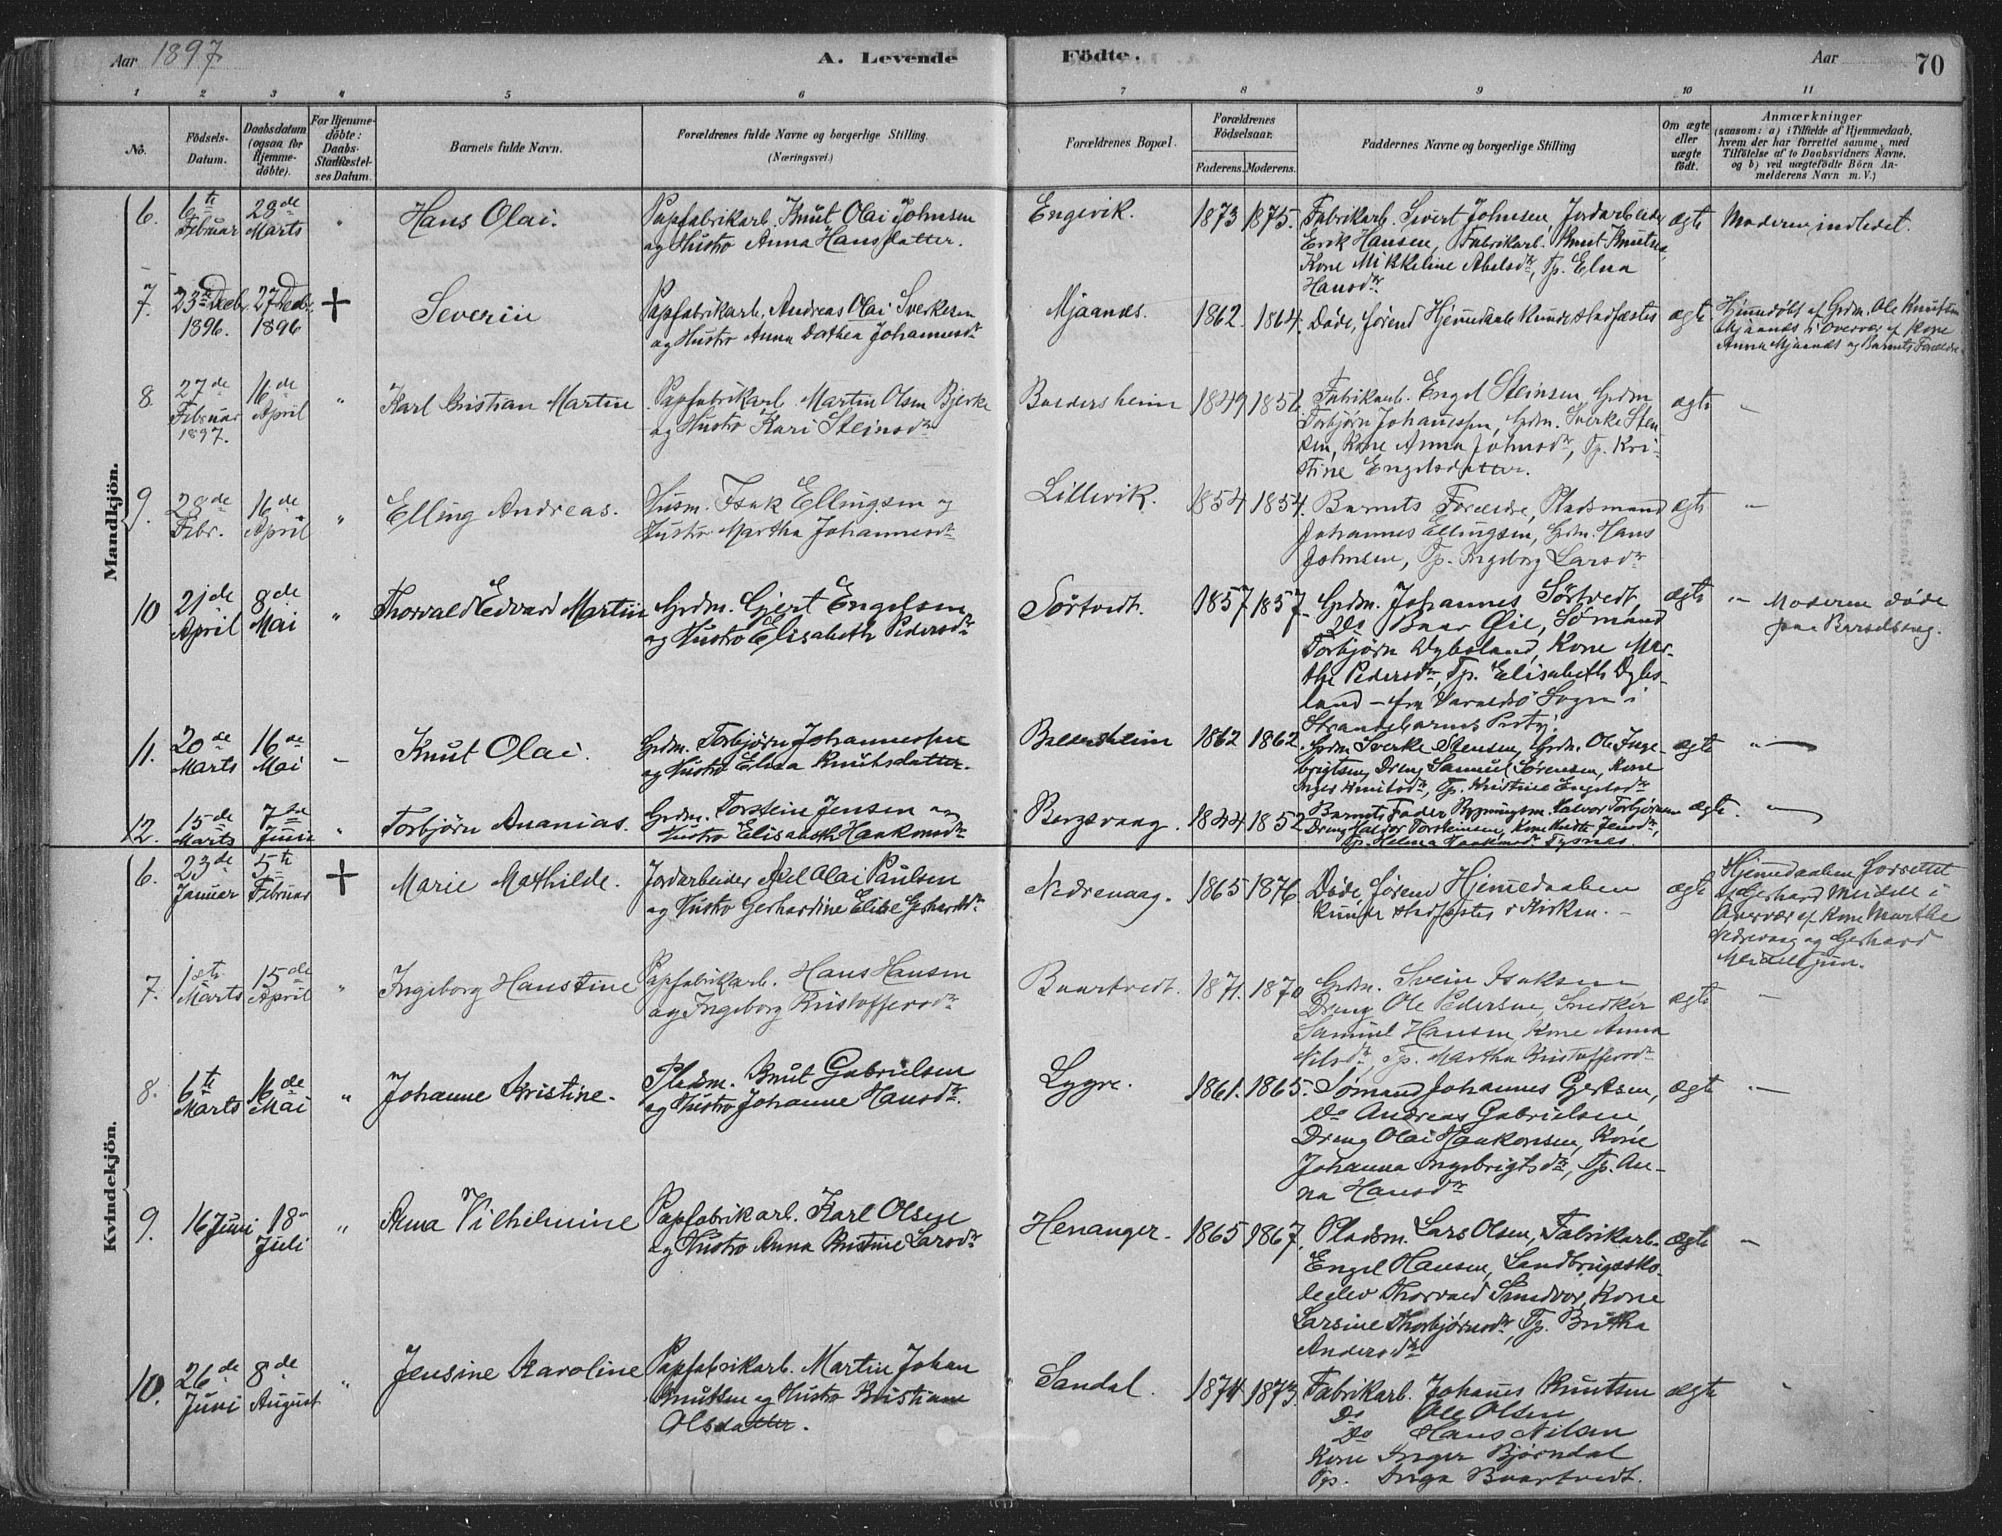 Aar 1897
A. Levende
Födte.
Aar
70
1 2 3 4 5 6 7 8 9 10 11
No.
Födsels-Datum.
Daabsdatum (ogsaa for Hjemmedöbte).
For Hjemmedöbte: Daabs-Stadfæstelses Datum.
Barnets fulde Navn.
Forældrenes fulde Navne og borgerlige Stilling.
(Næringsvei.)
Forældrenes Bopæl.
Forældrenes Födselsaar.
Faderens. Moderens.
Faddernes Navne og borgerlige Stilling
Om ægte eller uægte födt.
Anmærkninger
(saasom: a) i Tilfælde af Hjemmedaab, hvem der har forrettet samme, med Tilföielse af to Daabsvidners Navne, og b) ved uægtefödte Börn Anmelderens Navn m. V.)
Mandkjön.
6. 6te Februar 28de Marts " Hans Olai. Papfabrikarb. Knut Olai Johnsen
og Hustro Anna Hansdatter. Engevik. 1873 1875. Fabrikarb. Sivert Johnsen, Jordarbeider
Erik Hansen, Fabrikarb. Knut Knutsen,
Kone Mikkeline Abelsdr, Tp. Elna
Hansdr. ægte Moderen indledet.
7. 23de Decb. 1896. 27 Decb. 1896 + Severin Papfabrikarb. Andreas Olai Sverkesen
og Hustro Anna Dorthea Johannesdr Mjaanes. 1862. 1864. Døde, førend Hjemmedaab kunde stadfæstes ægte Hjemmedøbt af Grdm. Ole Knutsen
Mjaanes i Overvær af Kone
Anna Mjaanes og Barnets Forældre.
8. 27de Februar 1897. 16de April " Karl Kristian Martin Papfabrikarb. Martin Olsen Bjerke
og Hustro Kari Steinsdr Baldersheim 1849 1851 Fabrikarb. Engel Steinsen, Grdm
Torbjørn Johannessen, Grdm. Sverke Sten-
sen, Kone Anna Johnsdr, Tp. Kri-
stine Engelsdatter. ægte "
9. 28de Febr. 16de April " Elling Andreas. Husm. Isak Ellingsen og
Hustro Martha Johannesdr Lillevik. 1854 1854. Barnets Forældre, Pladsmand
Johannes Ellingsen, Grdm. Hans
Johnsen, Tp. Ingeborg Larsdr ægte "
10 21de April 8de Mai " Thorvald Edvard Martin Grdm. Gjert Engelsen
og Hustro Elisabeth Pedersdr Sørtvedt. 1857 1857 Grdm. Johannes Sørtvedt,
Do Baar Øie, Sømand
Torbjørn Dybsland, Kone Mar-
the Pedersdr, Tp. Elisabeth Dybs-
land - fra Varaldsø Sogn i
Strandebarms Prstgj. ægte " Moderen døde
paa Barselseng.
11. 20de Marts 16de Mai " Knut Olai. Grdm. Torbjørn Johannessen
og Hustro Elna Knutsdatter. Baldersheim 1862 1862. Grdm Sverke Stensen, Grdm. Ole Inge-
brigtsen, Dreng Samuel Sørensen, Kone
Inger Knutsdr, Tp. Kristine Engelsdr ægte "
12. 15de Marts 7de Juni " Torbjørn Ananias. Grdm. Torstein Jensen og
Hustro Elisabeth Haakonsdr Bergsvaag. 1844 1852 Barnets Fader, Halvor Torbjørnsen
Dreng Halvor Torsteinsen, Kone Jensdr,
Tp. Helena Haakonsdr Tysnes. ægte. "
Kvindekjön.
6. 23de Januar 5te Februar + Marie Mathilde. Jordarbeider Axel Olai Paulsen
og Hustro Gerhardine Elise Gerhardsdr Nedrevaag. 1865 1876. Døde førend Hjemmedaaben
kunde stadfæstes i Kirken. ægte Hjemmedaaben forrettet
af Gerhard Meidell i
Overvær af Kone Marthe
Nedrevaag og Gerhard
Meidell jun.
7. 1ste Marts 15de April " Ingeborg Hanstine Papfabrikarb. Hans Hansen
og Ingeborg Kristoffersdr Baartvedt. 1871. 1870 Grdm. Svein Isaksen
Dreng Ole Pedersen, Snedker
Samuel Hansen, Kone Anna
Nilsdr, Tp. Martha Kristoffersdr ægte "
8. 6te Marts 16de Mai " Johanne Kristine. Pladsm. Knut Gabrielsen
og Hustro Johanne Hansdr. Lygre. 1861. 1865. Sømand Johannes Gjertsen,
Do Andreas Gabrielsen
Dreng Olai Haakonsen, Kone
Johanna Ingebrigtsdr, Tp. An-
na Hansdr ægte "
9. 16 Juni 18 Juli " Anna Vilhelmine Papfabrikarb. Karl Olsen
og Hustro Anna Kristine Larsdr Henanger. 1865 1867. Pladsm. Lars Olsen, Fabrikarb.
Engel Hansen, Landbrugssko-
leelev Thorvald Sundvor, Kone
Larsine Thorbjørnsdr, Tp. Britha
Andersdr ægte "
10. 26de Juni 8de August " Jensine Karoline Papfabrikarb. Martin Johan
Knutsen og Hustro Kristiane
Olsdatter. Sandal. 1874 1873. Fabrikarb. Johannes Knutsen
Do Ole Olsen
Do Hans Nilsen
Kone Inger Bjørndal
Tp. Inga Baartvedt. ægte "